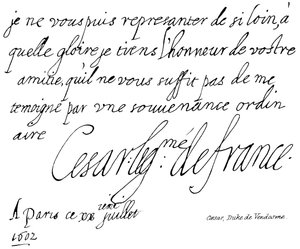 je ne vous puis representer de si loin, à
quelle gloire je tiens l'honneur de vostre
amitie, qu'il ne vous suffit pas de me
temoigné par vne souuenance ordin
aire
Cesar: Leg.mé de france.
A Paris ce xxx ieme juillet
1602
Cæsar, Duke de Vendosme